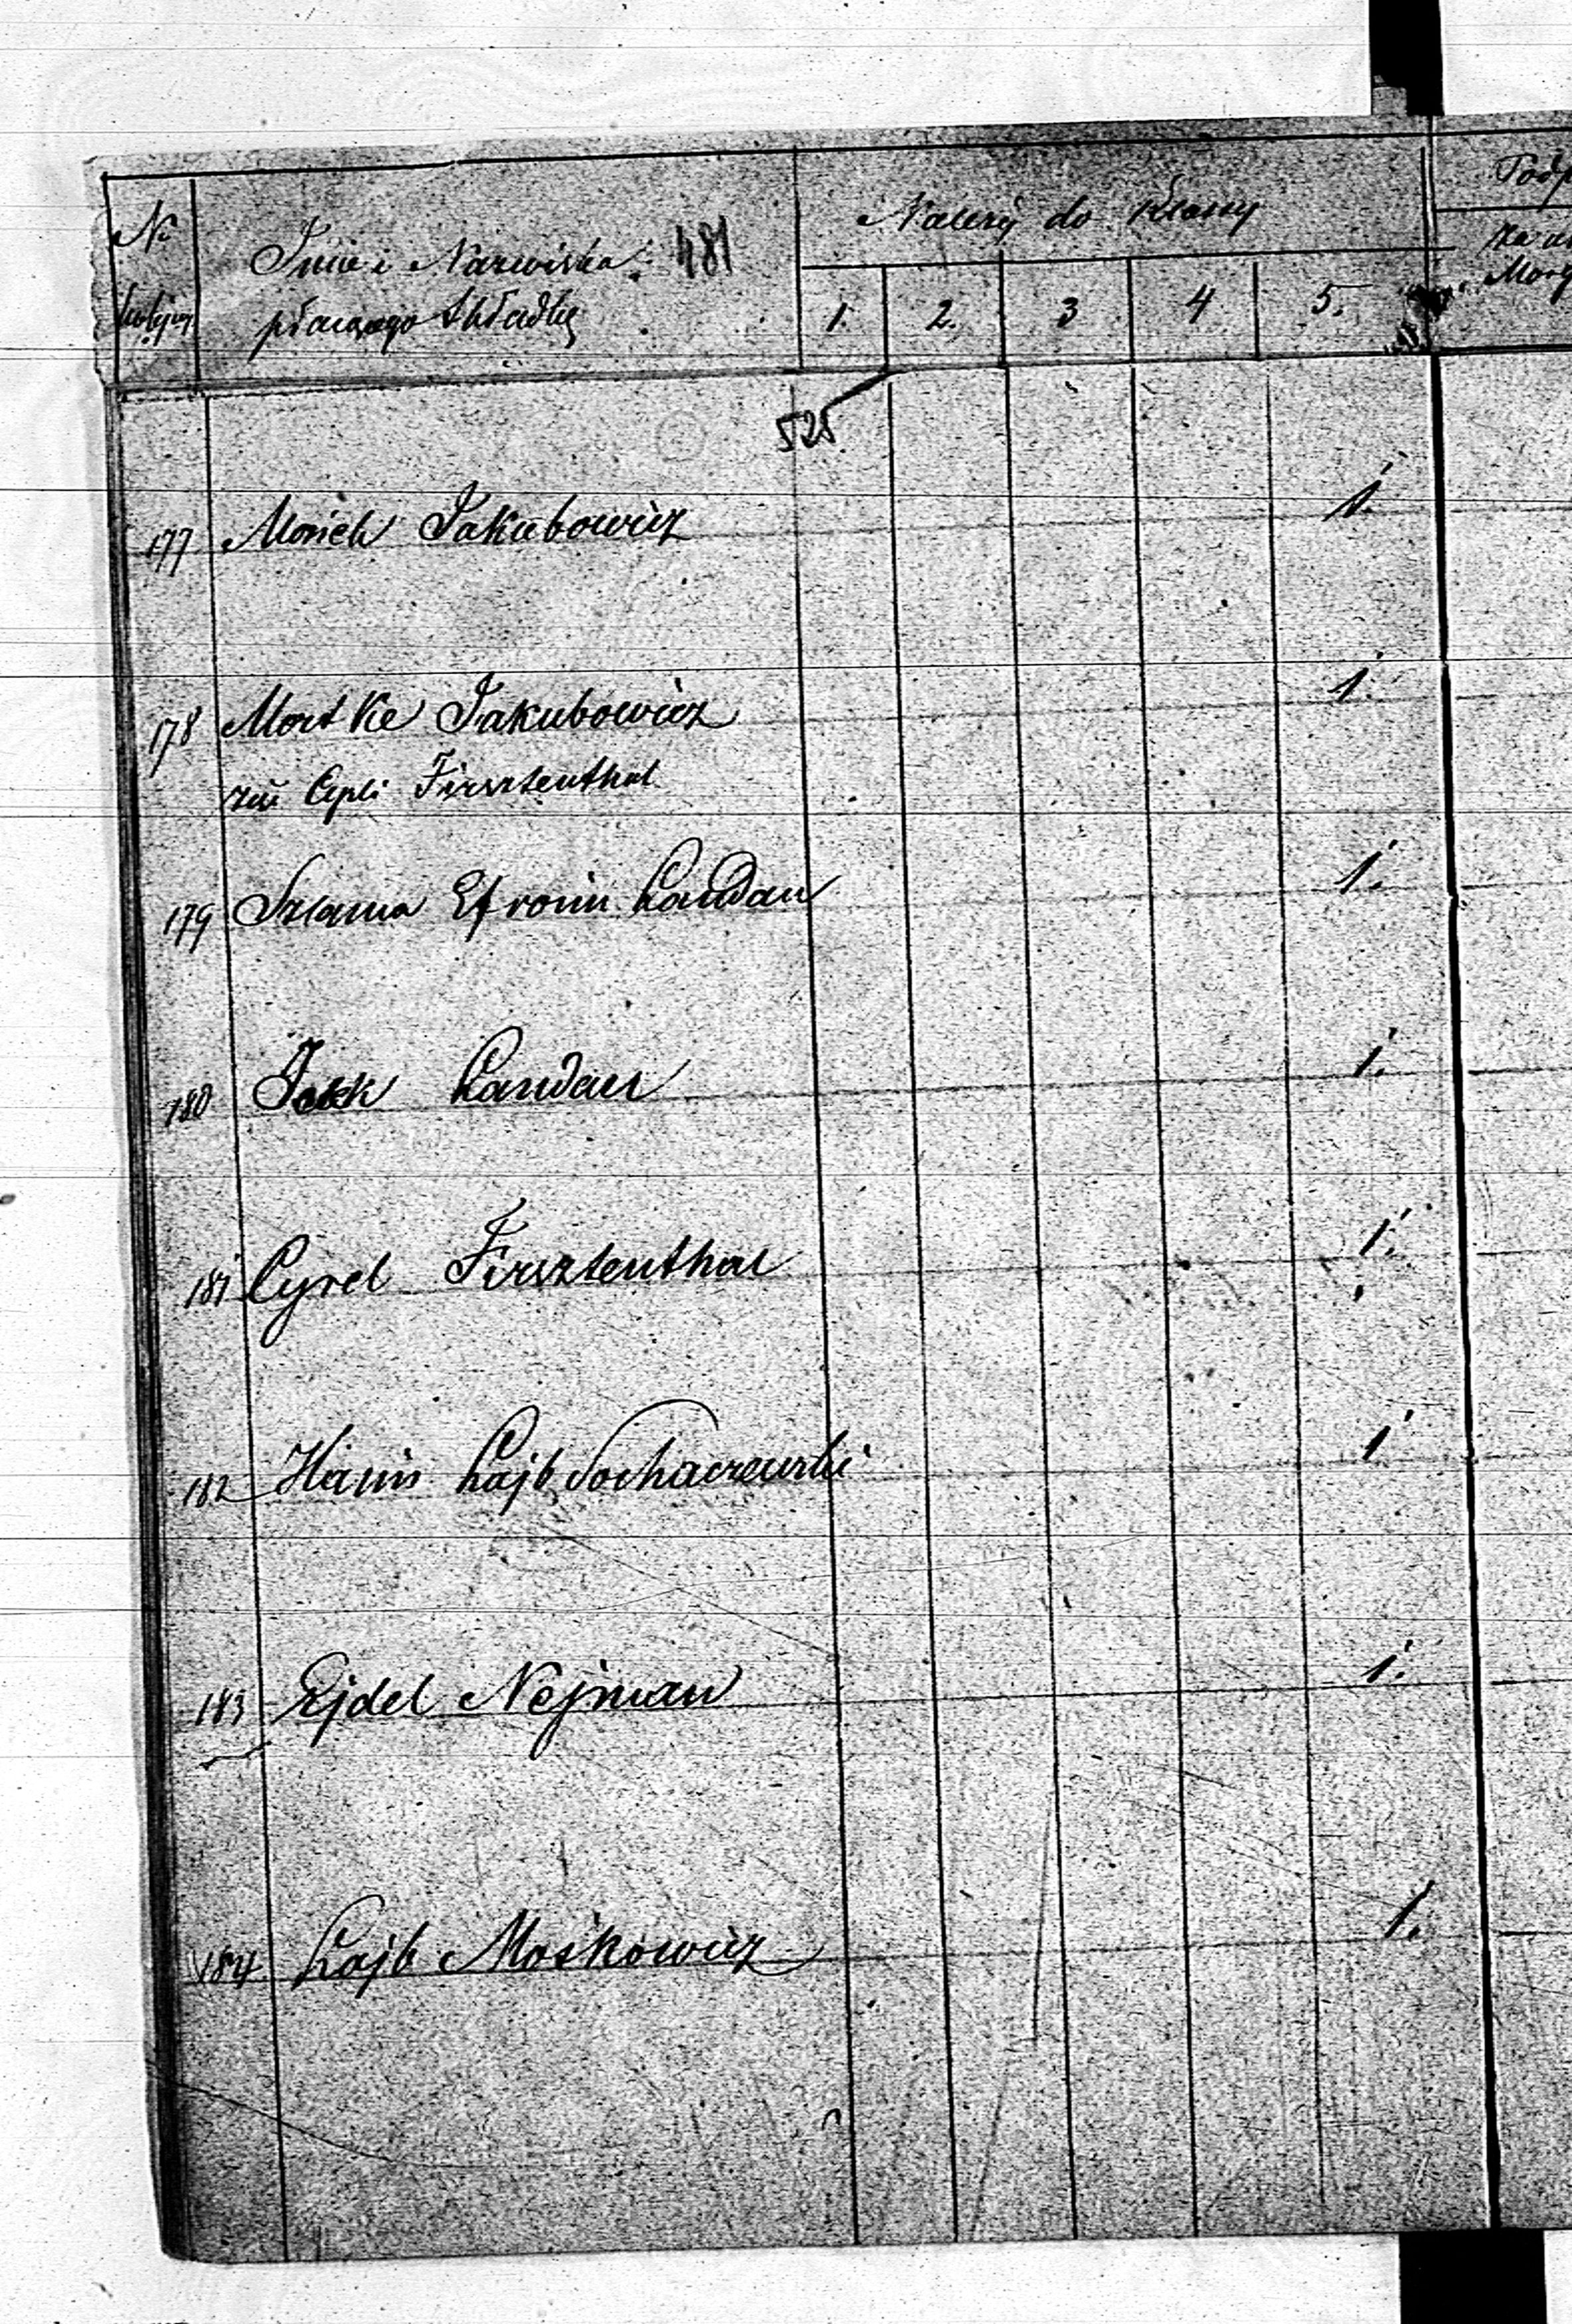 No Imie i Nazwiska 481 Należy do Klassy
kolejny płacącego Składkę 1. 2. 3 4 5.
525
177 Mosiek Jakubowicz 1.
178 Mortke Jakubowicz 1.
zięć Cypli Firsztenthal
179 Szlama Efroim Landau 1.
180 Icek Landau 1.
181 Cyrel Firsztenthal 1.
182 Haim Lajb Sochaczewski 1
183 Ejdel Nejman 1.
184 Lajb Mośkowicz 1.